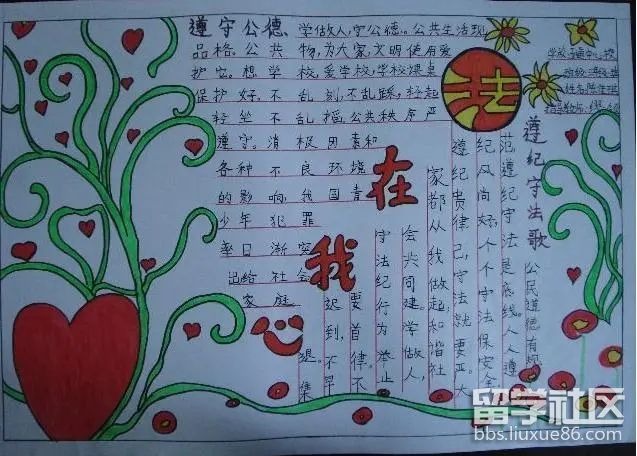 遵守公德
学做人,守公德。公共生活现
品格。公共 物,为大家,文明使用爱
护它。想学 校,爱学校,学校课桌
保护好。不乱刻,不乱踩,轻起
轻坐不乱搞。公共秩序严
遵守。消极因素和
各种不良环境
的影响,我国青
少年犯罪
率日渐突
出给社会
家庭
法
在
我
心
遵纪守法歌
公民道德有规
范遵纪守法是底线。人人遵
纪风尚好,个个守法保安全
遵纪贵律己,守法就要严大
家都从我做起和谐社
会共同建学做人,
守法纪行为举止
要首律。不
迟到,早
退。集
留学社区
bbs.liuxue86.com